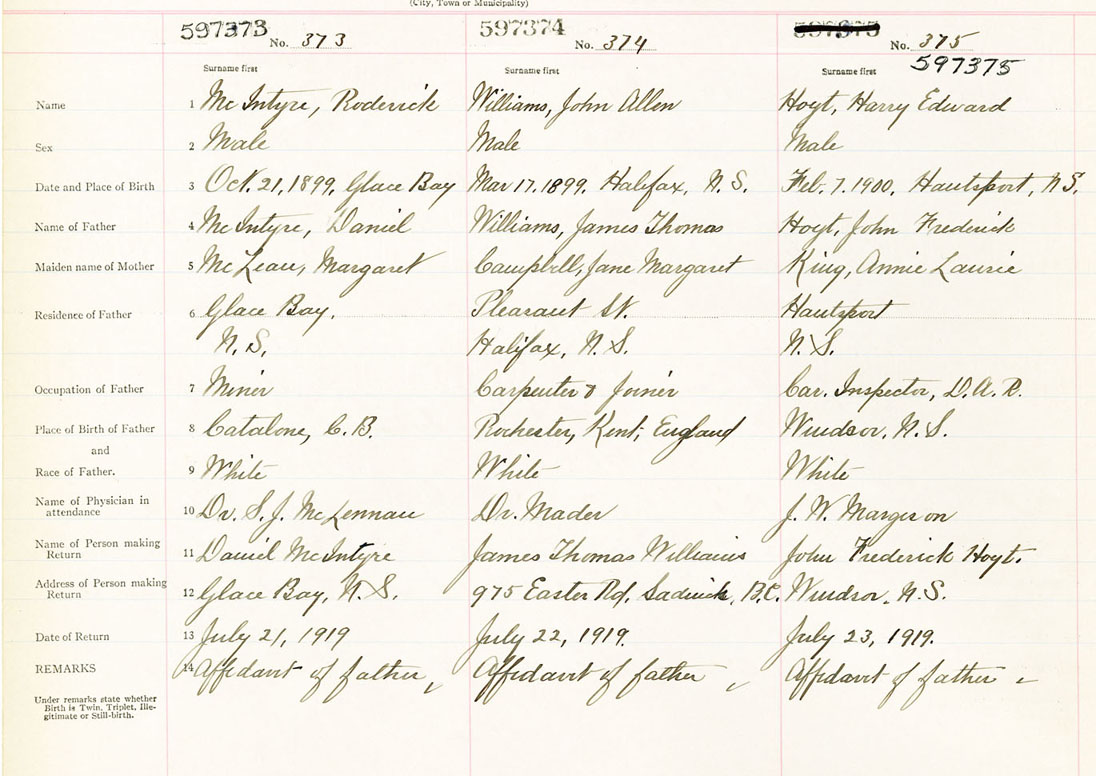 (City, Town or Municipality)
597373 No. 373 597374 No. 374 597375 No. 375
597375
Surname first Surname first Surname first
Name 1 Mc Intyre, Roderick Williams, John Allen Hoyt, Harry Edward
Sex 2 Male Male Male
Date and Place of Birth 3 Oct. 21, 1899, Glace Bay Mar 17. 1899. Halifax, N.S. Feb. 7. 1900, Hantsport, N.S.
Name of Father 4 Mc Intyre, Daniel Williams, James Thomas Hoyt, John Frederick
Maiden name of Mother 5 Mc Lean, Margaret Campbell, Jane Margaret King, Annie Laurie
Residence of Father 6 Glace Bay, Pleasant St. Hantsport
N.S. Halifax, N.S. N.S.
Occupation of Father 7 Miner Carpenter & Joiner Car. Inspector, D.A.R.
Place of Birth of Father 8 Catalone, C.B. Rochester, Kent, England Windsor, N.S.
and
Race of Father. 9 White White White
Name of Physician in
attendance 10 Dr. S.J. McLennan Dr. Mader J. W. Margeson
Name of Person making
Return 11 Daniel McIntyre James Thomas Williams John Frederick Hoyt.
Address of Person making
Return 12 Glace Bay, N.S. 975 Easter Rd, B.C. Windsor, N.S.
Date of Return 13 July 21, 1919 July 22, 1919. July 23, 1919.
REMARKS 14 Affidavit of father, Affidavit of father Affidavit of father
Under remarks state whether
Birth is Twin, Triplet, Ille-
gitimate or Still-birth.